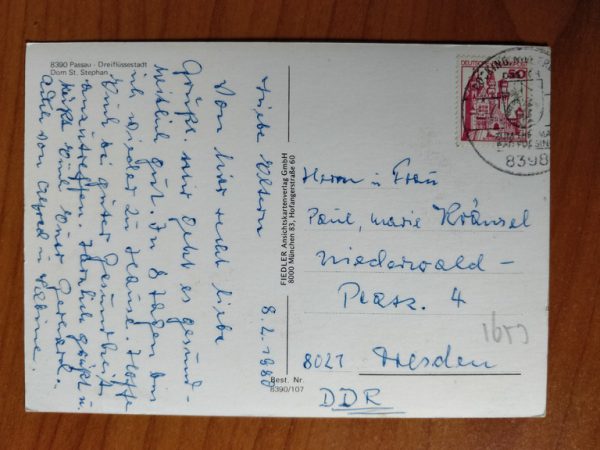 8390 Passau - Dreiflüssestadt
Dom St. Stephan
8.2.1980
Liebe Eltern
Von hier recht liebe
Grüße. mir geht es gesund-
heitlich gut. In 8 Tagen bin
ich wieder zu Hause. Hoffe
Euch bei guter Gesundheit
anzutreffen. Herzlich grüßt u.
küßt Euch Euer Gerhard.
auch von Alfred u.
FIEDLER Ansichtskartenverlag GmbH
8000 München 83, Hofangerstraße 60
Best. Nr.
8390/107
50
8398
Herrn u Frau
Paul, Marie Kränsel
Niederwald-
Platz. 4
8021 Dresden
DDR